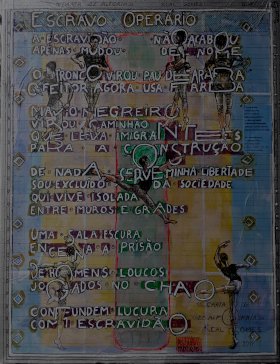 ESCRAVO OPERÁRIO
A ESCRAVIDÃO NÃO ACABOU
APENAS MUDOU DE NOME
O TRONCO VIROU PAU DE ARARA
O FEITOR AGORA USA FARDA
NAVIO NEGREIRO
VIROU CAMINHÃO
QUE LEVA MIGRANTES
PARA A CONSTRUÇÃO
DE NADA SERVE MINHA LIBERDADE
SOU EXCLUÍDO DA SOCIEDADE
QUI VIVE ISOLADA
ENTRE MUROS E GRADES
UMA SALA ESCURA
ENCENA A PRISÃO
DE HOMENS LOUCOS
JOGADOS NO CHÃO
CONFUNDEM LUCURA
COM ESCRAVIDÃO